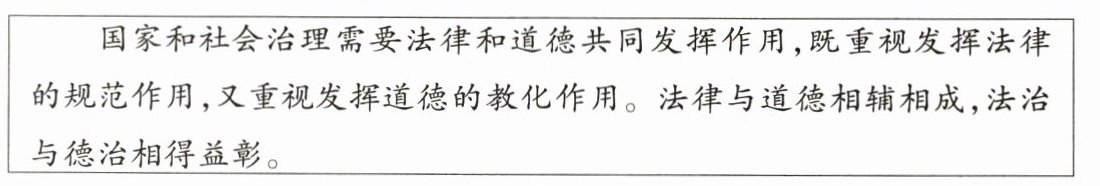 国家和社会治理需要法律和道德共同发挥作用,既重视发挥法律
的规范作用,又重视发挥道德的教化作用。法律与道德相辅相成,法治
与德治相得益彰。